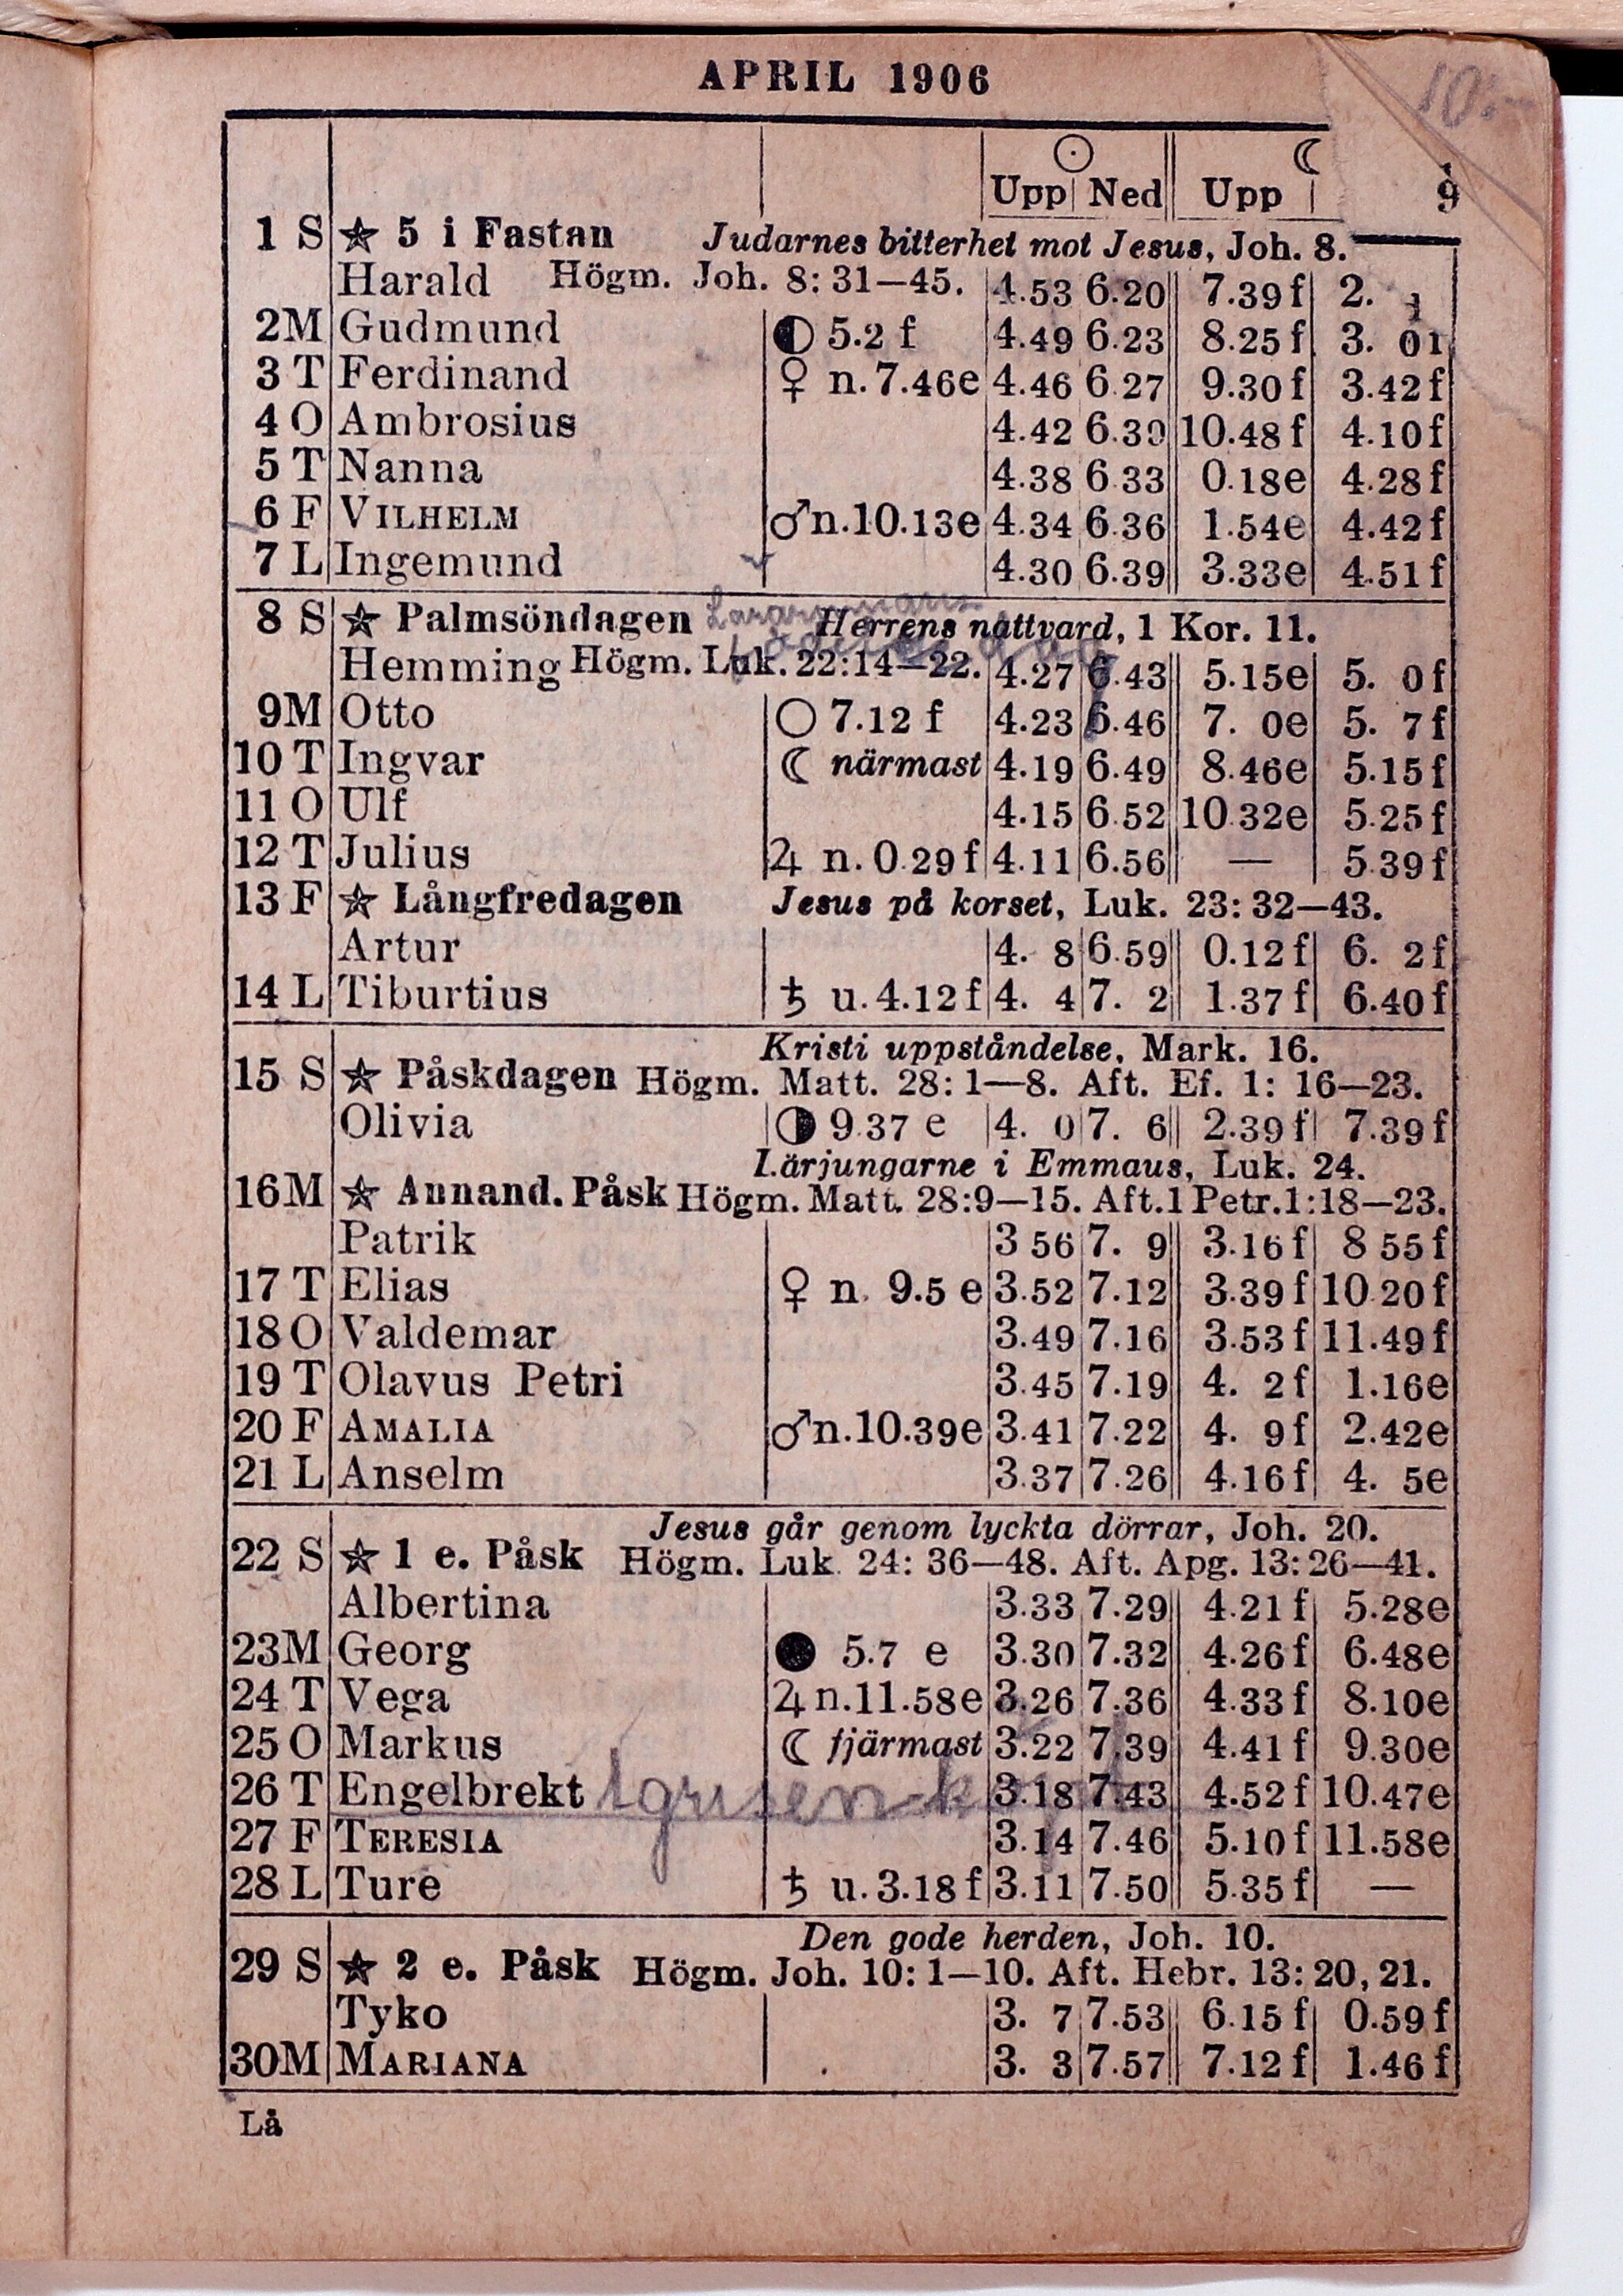 APRIL 1906
10:-
☉ ☾
Upp Ned Upp 9
1 S ☆ 5 i Fastan Judarnes bitterhet mot Jesus, Joh. 8.
Harald Högm. Joh. 8: 31—45. 4.53 6.20 7.39 f 2.
2 M Gudmund ◐ 5.2 f 4.49 6.23 8.25 f 3. 0 f
3 T Ferdinand ♀ n. 7.46 e 4.46 6.27 9.30 f 3.42 f
4 O Ambrosius 4.42 6.30 10.48 f 4.10 f
5 T Nanna 4.38 6.33 0.18 e 4.28 f
6 F VILHELM ♂ n. 10.13 e 4.34 6.36 1.54 e 4.42 f
7 L Ingemund 4.30 6.39 3.33 e 4.51 f
8 S ☆ Palmsöndagen Herrens nattvard, 1 Kor. 11.
Hemming Högm. Luk. 22:14—22. 4.27 6.43 5.15 e 5. 0 f
9 M Otto ○ 7.12 f 4.23 6.46 7. 0 e 5. 7 f
10 T Ingvar ☾ närmast 4.19 6.49 8.46 e 5.15 f
11 O Ulf 4.15 6.52 10.32 e 5.25 f
12 T Julius ♃ n. 0.29 f 4.11 6.56 — 5.39 f
13 F ☆ Långfredagen Jesus på korset, Luk. 23: 32—43.
Artur 4. 8 6.59 0.12 f 6. 2 f
14 L Tiburtius ♄ u. 4.12 f 4. 4 7. 2 1.37 f 6.40 f
Kristi uppståndelse, Mark. 16.
15 S ☆ Påskdagen Högm. Matt. 28: 1—8. Aft. Ef. 1: 16—23.
Olivia ◑ 9.37 e 4. 0 7. 6 2.39 f 7.39 f
Lärjungarne i Emmaus, Luk. 24.
16 M ☆ Annand. Påsk Högm. Matt. 28:9—15. Aft. 1 Petr. 1:18—23.
Patrik 3 56 7. 9 3.16 f 8 55 f
17 T Elias ♀ n. 9.5 e 3.52 7.12 3.39 f 10 20 f
18 O Valdemar 3.49 7.16 3.53 f 11.49 f
19 T Olavus Petri 3.45 7.19 4. 2 f 1.16 e
20 F AMALIA ♂ n. 10.39 e 3.41 7.22 4. 9 f 2.42 e
21 L Anselm 3.37 7.26 4.16 f 4. 5 e
Jesus går genom lyckta dörrar, Joh. 20.
22 S ☆ 1 e. Påsk Högm. Luk. 24: 36—48. Aft. Apg. 13: 26—41.
Albertina 3.33 7.29 4.21 f 5.28 e
23 M Georg ● 5.7 e 3.30 7.32 4.26 f 6.48 e
24 T Vega ♃ n. 11.58 e 3.26 7.36 4.33 f 8.10 e
25 O Markus ☾ fjärmast 3.22 7.39 4.41 f 9.30 e
26 T Engelbrekt 3.18 7.43 4.52 f 10.47 e
27 F TERESIA 3.14 7.46 5.10 f 11.58 e
28 L Ture ♄ u. 3.18 f 3.11 7.50 5.35 f —
Den gode herden, Joh. 10.
29 S ☆ 2 e. Påsk Högm. Joh. 10: 1—10. Aft. Hebr. 13: 20, 21.
Tyko 3. 7 7.53 6.15 f 0.59 f
30 M MARIANA 3. 3 7.57 7.12 f 1.46 f
Lå